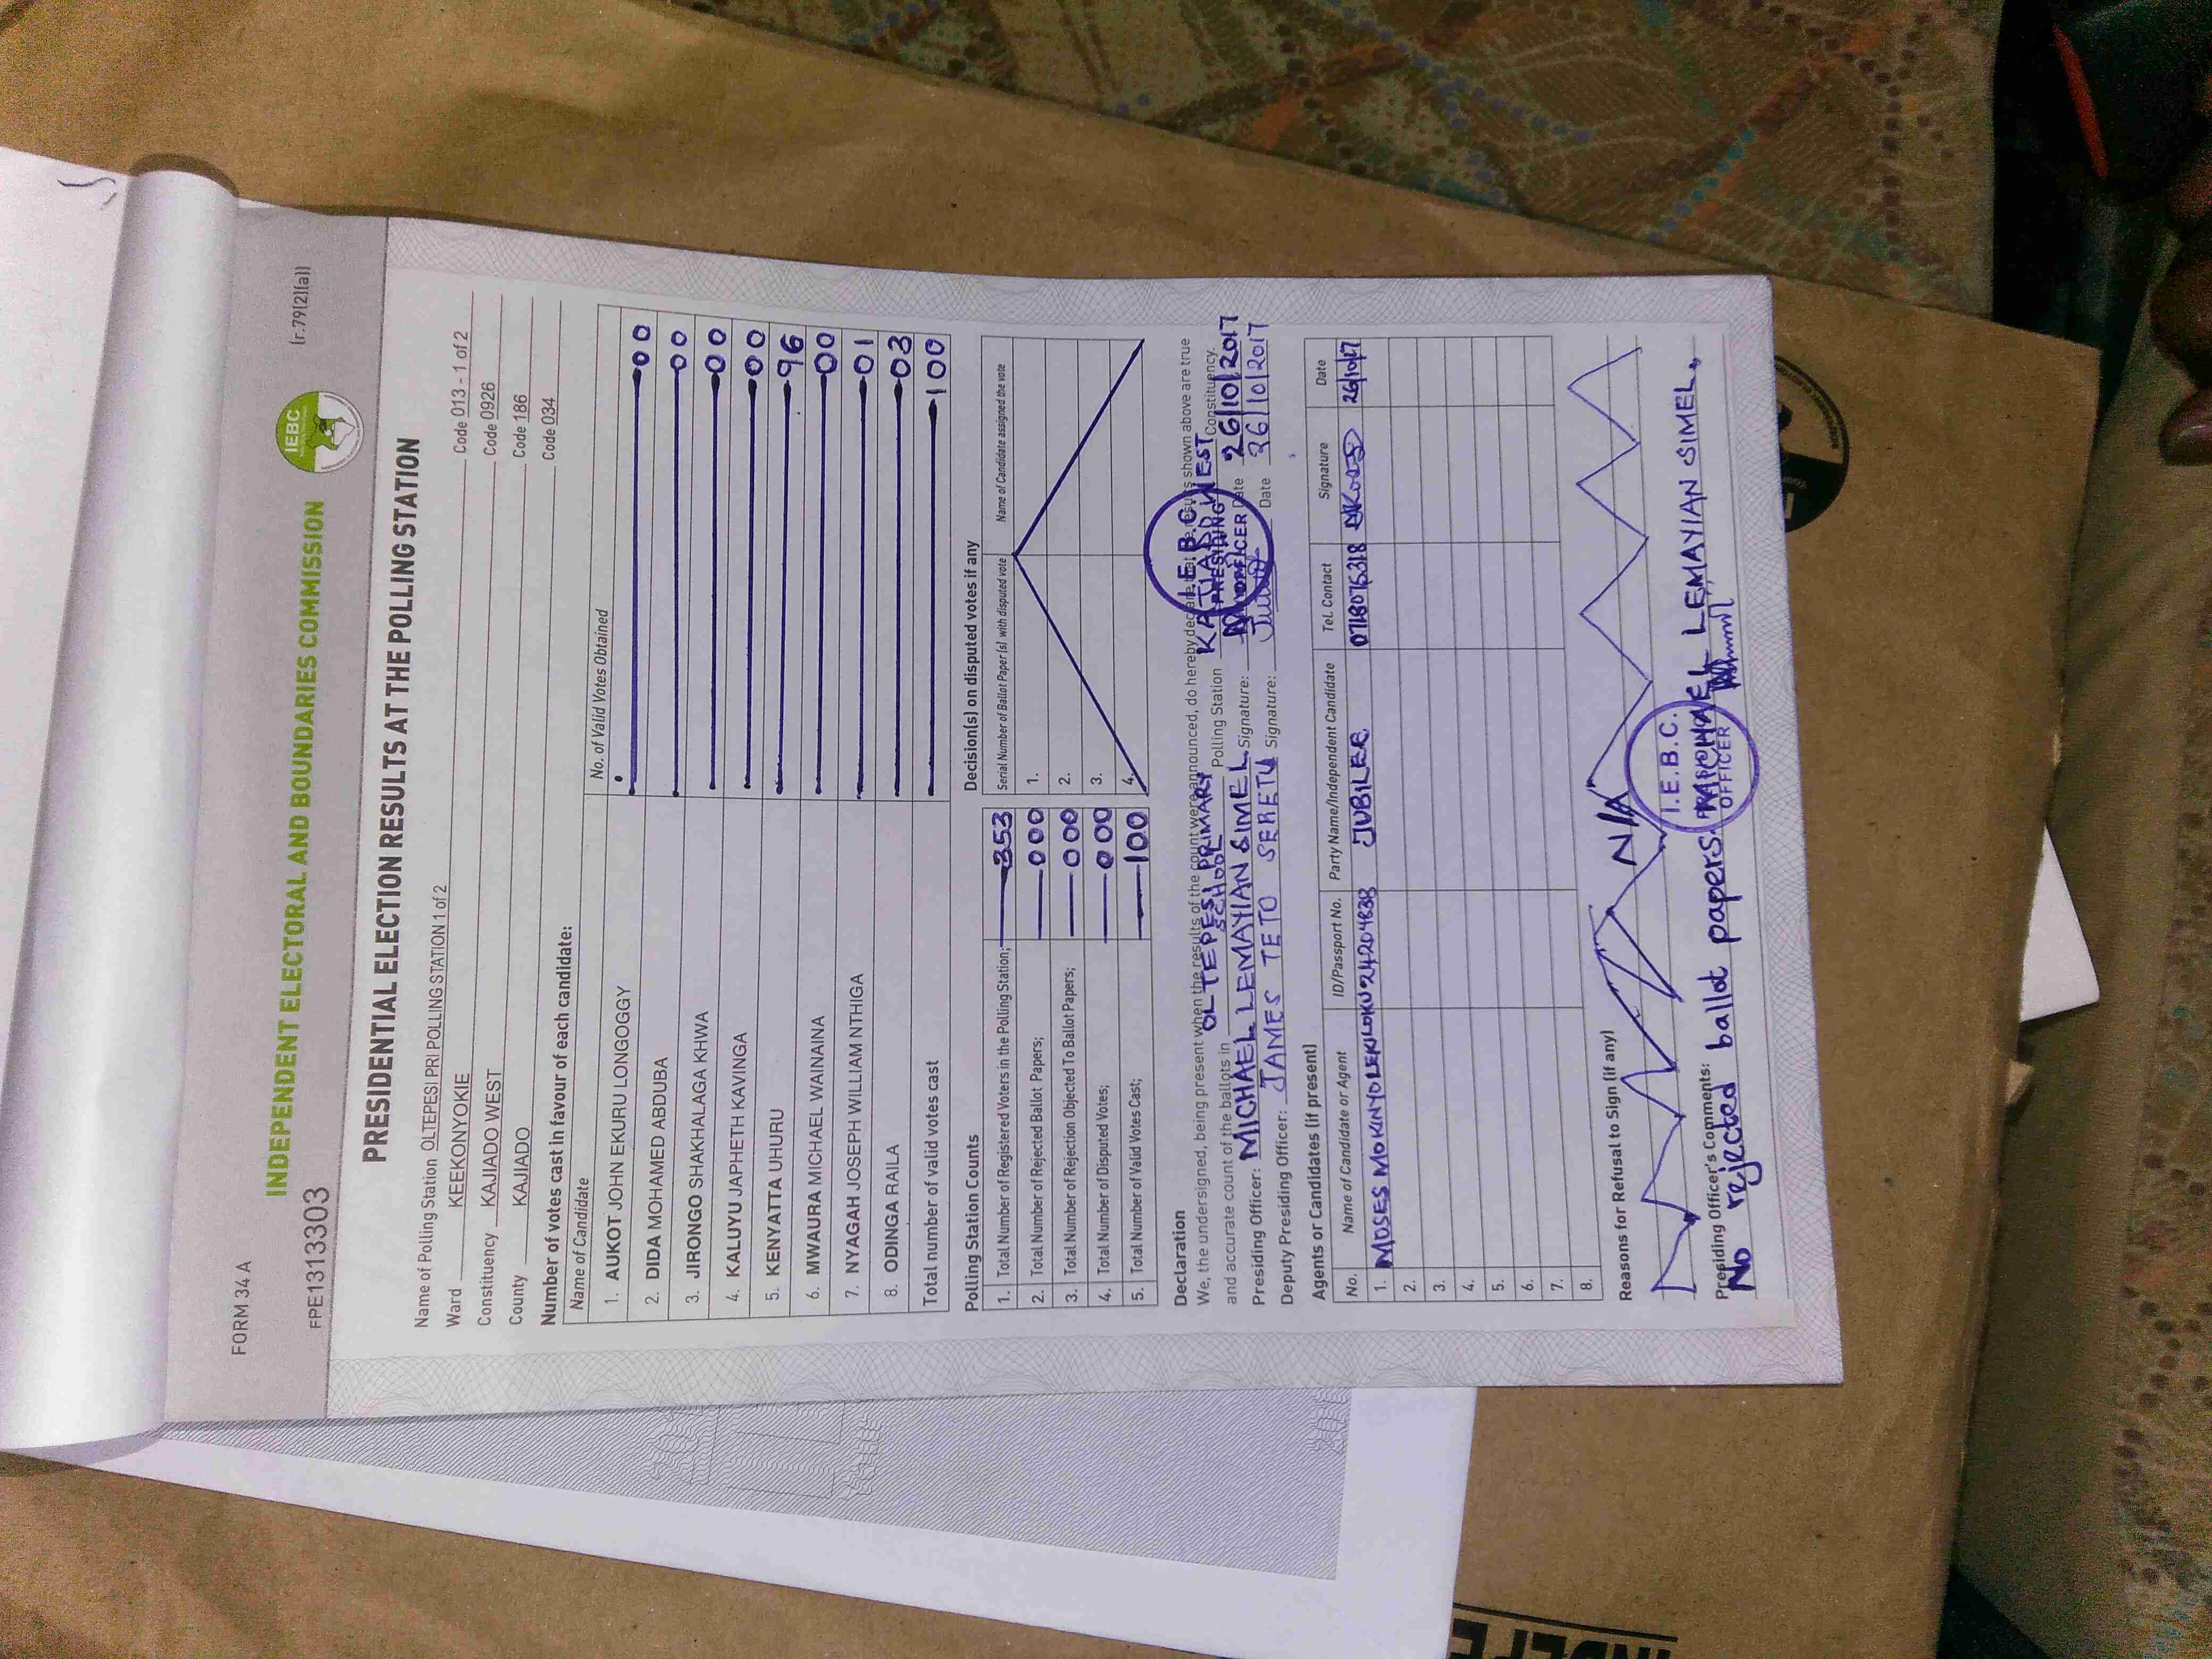 FORM 34 A
INDEPENDENT ELECTORAL AND BOUNDARIES COMMISSION
IEBC
(r.79(2)(a))
FPE1313303
PRESIDENTIAL ELECTION RESULTS AT THE POLLING STATION
Name of Polling Station OLTEPESI PRI POLLING STATION 1 of 2 Code 013 - 1 of 2
Ward KEEKONYOKIE Code 0926
Constituency KAJIADO WEST Code 186
County KAJIADO Code 034
Number of votes cast in favour of each candidate:
Name of Candidate No. of Valid Votes Obtained
1. AUKOT JOHN EKURU LONGOGGY 00
2. DIDA MOHAMED ABDUBA 00
3. JIRONGO SHAKHALAGA KHWA 00
4. KALUYU JAPHETH KAVINGA 00
5. KENYATTA UHURU 96
6. MWAURA MICHAEL WAINAINA 00
7. NYAGAH JOSEPH WILLIAM NTHIGA 01
8. ODINGA RAILA 03
Total number of valid votes cast 100
Polling Station Counts
1. Total Number of Registered Voters in the Polling Station; 353
2. Total Number of Rejected Ballot Papers; 000
3. Total Number of Rejection Objected To Ballot Papers; 000
4. Total Number of Disputed Votes; 000
5. Total Number of Valid Votes Cast; 100
Decision(s) on disputed votes if any
Serial Number of Ballot Paper (s) with disputed vote Name of Candidate assigned the vote
1.
2.
3.
4.
Declaration
We, the undersigned, being present when the results of the count were announced, do hereby declare that the results shown above are true
and accurate count of the ballots in OLTEPESI PRIMARY SCHOOL Polling Station KAJIADO WEST Constituency.
Presiding Officer: MICHAEL LEMAYIAN SIMEL Signature: Date 26/10/2017
Deputy Presiding Officer: JAMES TETO SERETU Signature: Date 26/10/2017
I.E.B.C.
PRESIDING
OFFICER
Agents or Candidates (if present)
No. Name of Candidate or Agent ID/Passport No. Party Name/Independent Candidate Tel. Contact Signature Date
1. MOSES MOKINYO LEKILOKU 24204838 JUBILEE 0718075318 26/10/17
2.
3.
4.
5.
6.
7.
8.
Reasons for Refusal to Sign (if any)
N/A
Presiding Officer's Comments:
No rejected ballot papers. MICHAEL LEMAYIAN SIMEL.
I.E.B.C.
OFFICER